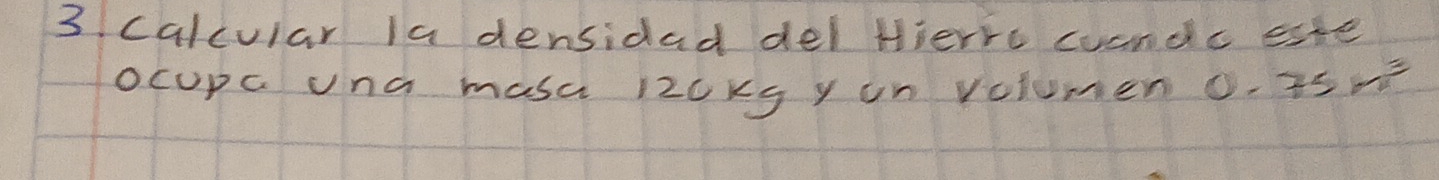 3. Calcular la densidad del Hierro cuando este
ocupa una masa 120Kg y un volumen 0.75 m³